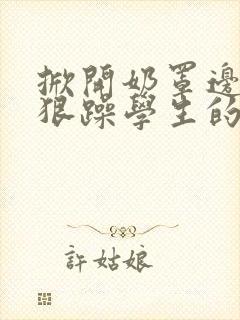 掀開奶罩邊
狠躁學生的
許姑娘